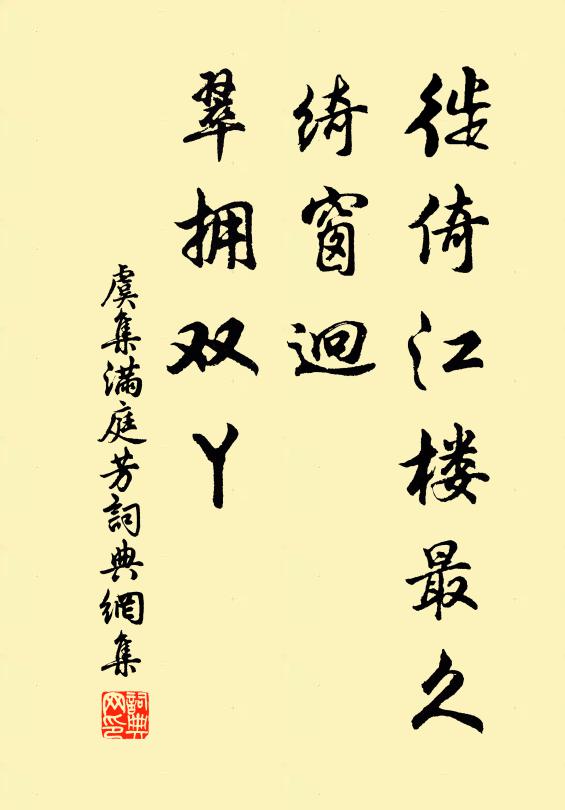 徙倚江楼最久
绮窗迥
翠拥双丫
虞集满庭芳詞典網集
詞典网印